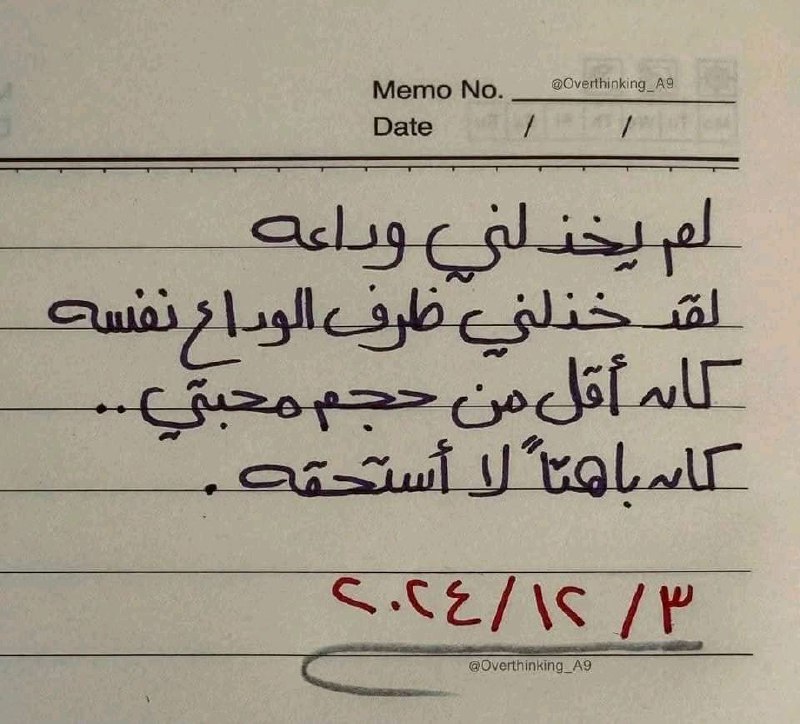 @Overthinking_A9
Memo No.
Date / /
لم يخذلني وداعه
لقد خذلني ظرف الوداع نفسه
كان أقل من حجم محبتي ..
كان باهتاً لا أستحقه .
٣/ ١٢/ ٢٠٢٤
@Overthinking_A9